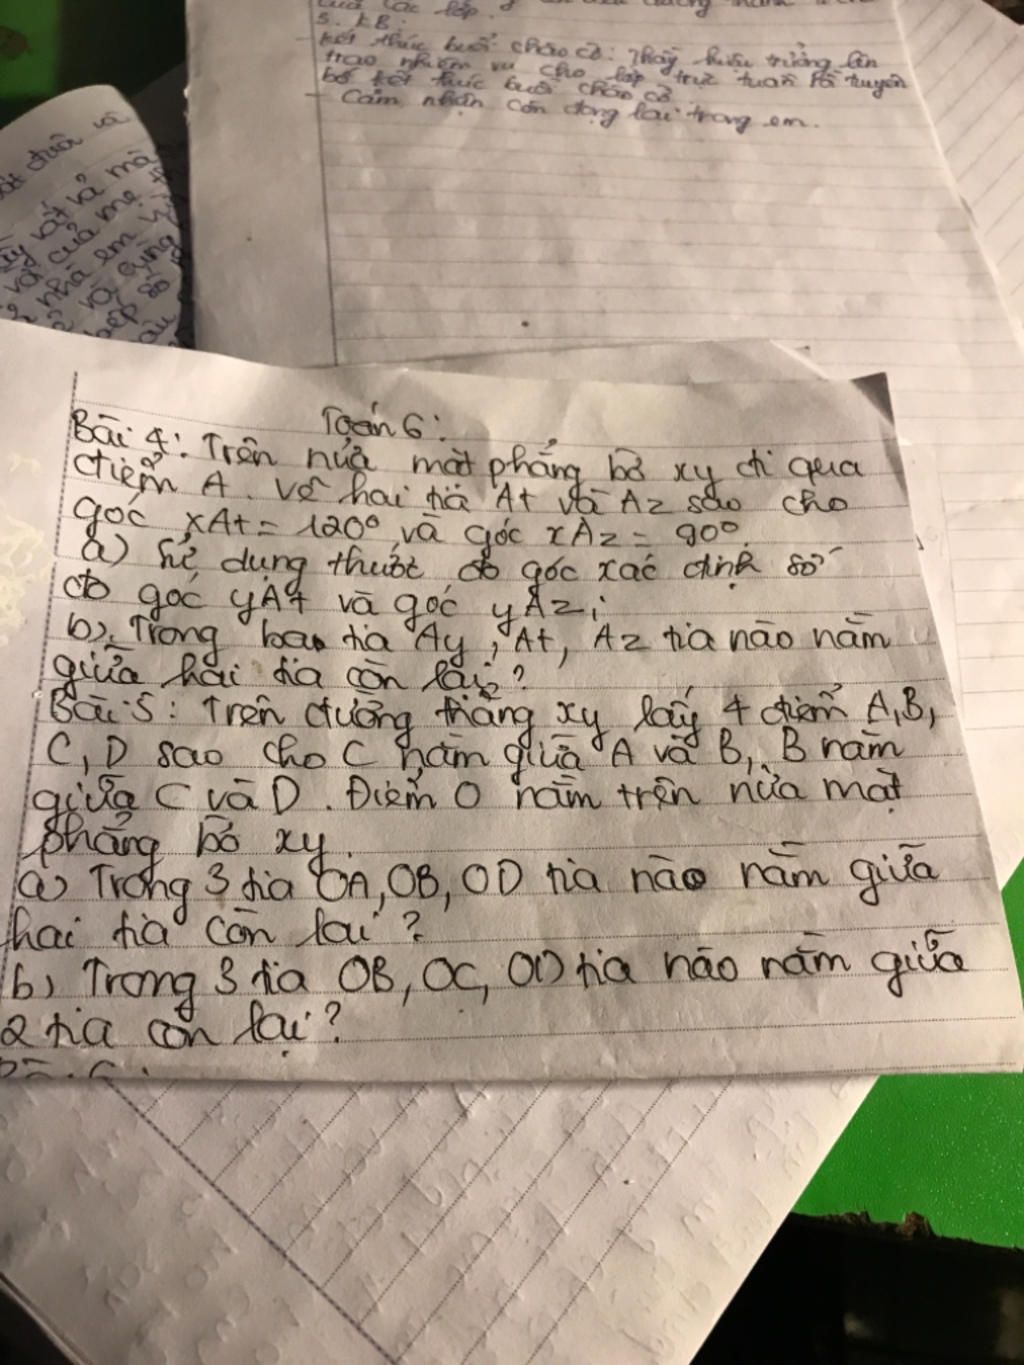 của các lớp.
5. KB:
- Kết thúc buổi chào cờ: Thầy hiệu trưởng lên
trao nhiệm vụ cho lớp trực tuần và tuyên
bố kết thúc buổi chào cờ
- Cảm nhận còn đọng lại trong em.
vất vả mà
với của mẹ
nhà em
và cũng
Toán 6:
Bài 4: Trên nửa mặt phẳng bờ xy đi qua
điểm A. Vẽ hai tia At và Az sao cho
góc xAt = 120° và góc xAz = 90°.
a) Sử dụng thước đo góc xác định số
đo góc yAt và góc yAz;
b). Trong ba tia Ay, At, Az tia nào nằm
giữa hai tia còn lại?
Bài 5: Trên đường thẳng xy lấy 4 điểm A,B,
C, D sao cho C nằm giữa A và B, B nằm
giữa C và D. Điểm O nằm trên nửa mặt
phẳng bờ xy.
a) Trong 3 tia OA, OB, OD tia nào nằm giữa
hai tia còn lại?
b) Trong 3 tia OB, OC, OD tia nào nằm giữa
2 tia còn lại?